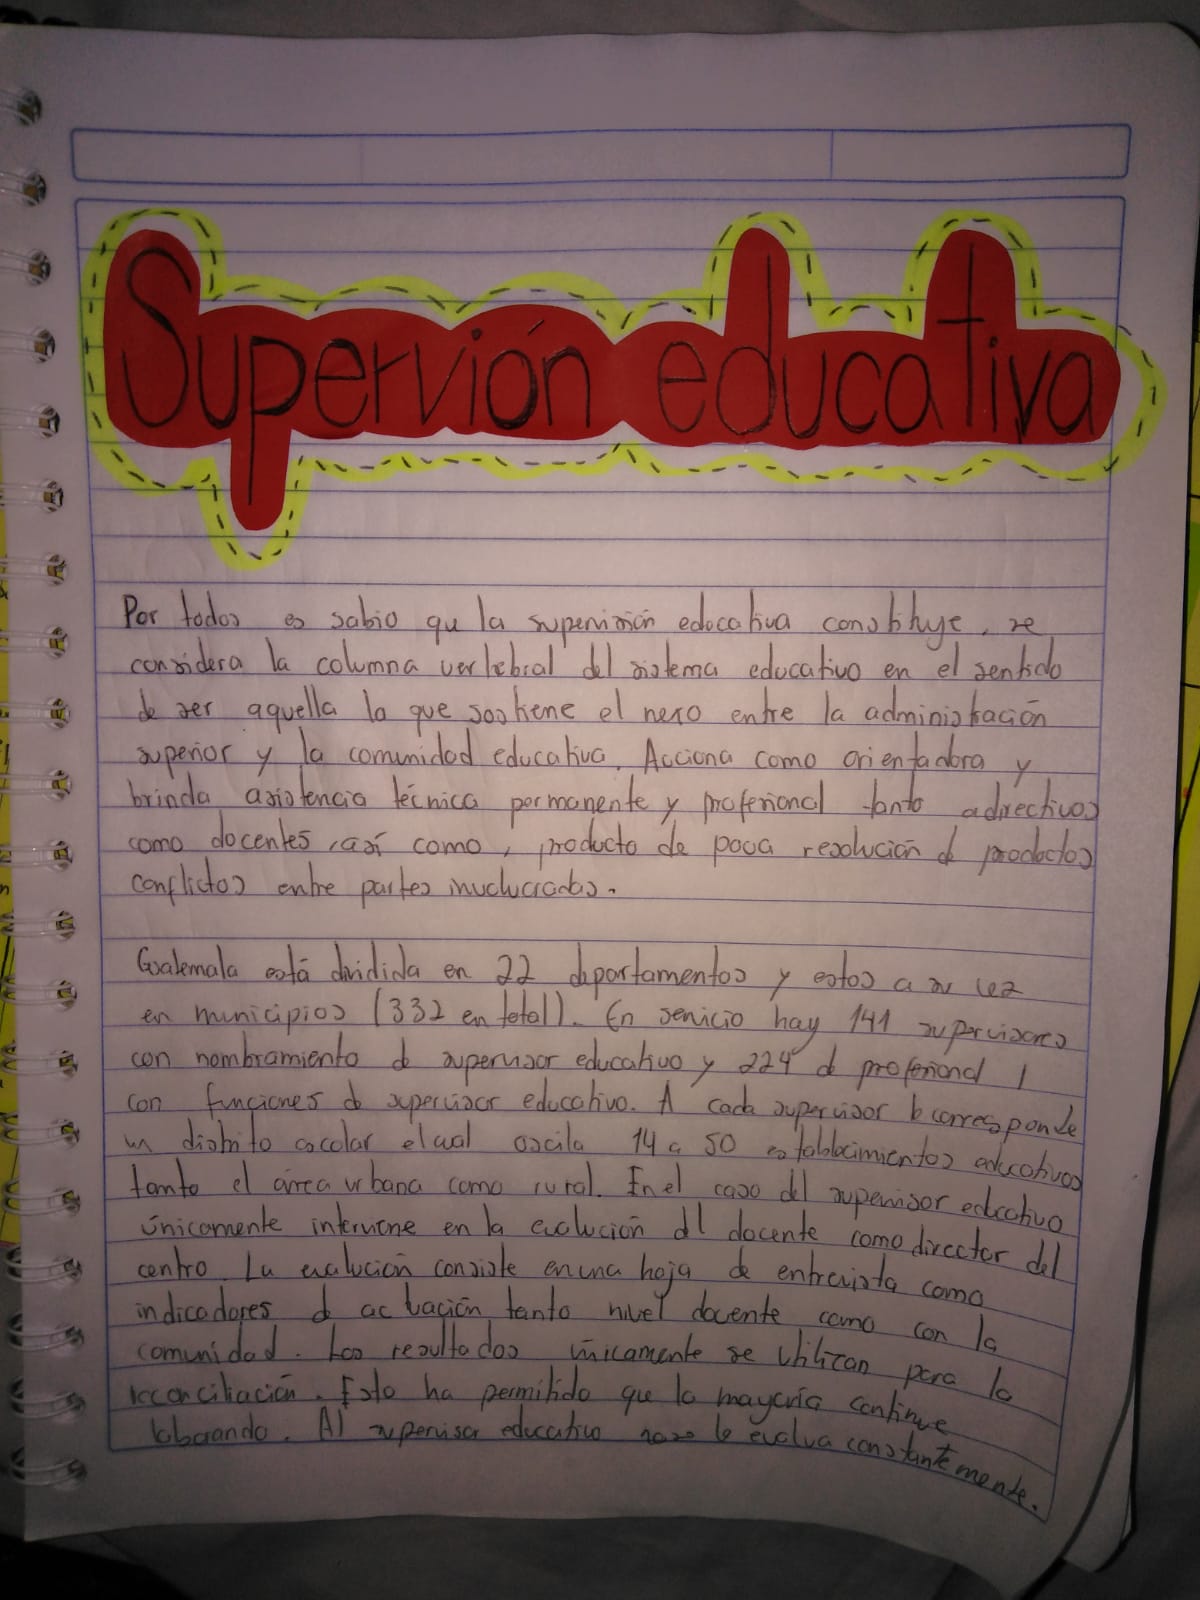 Supervión educativa
Por todos es sabio qu la supervisión educativa constituye, se
considera la columna vertebral del sistema educativo en el sentido
de ser aquella la que sostiene el nexo entre la administración
superior y la comunidad educativa. Acciona como orientadora y
brinda asistencia técnica permanente y profesional tanto a directivos
como docentes, así como, producto de resolución de productos
conflictos entre partes involucradas.
Guatemala está dividida en 22 departamentos y estos a su vez
en municipios (332 en total). En servicio hay 141 supervisores
con nombramiento de supervisor educativo y 224 de profesional 1
con funciones de supervisor educativo. A cada supervisor le corresponde
un distrito escolar el cual oscila 14 a 50 establecimientos educativos
tanto el área urbana como rural. En el caso del supervisor educativo
únicamente interviene en la evolución del docente como director del
centro. La evalución consiste en una hoja de entrevista como
indicadores de actuación tanto nivel docente como con la
comunidad. Los resultados únicamente se utilizan para la
reconciliación. Esto ha permitido que la mayoría continue
laborando. Al supervisor educativo le evalua constantemente.